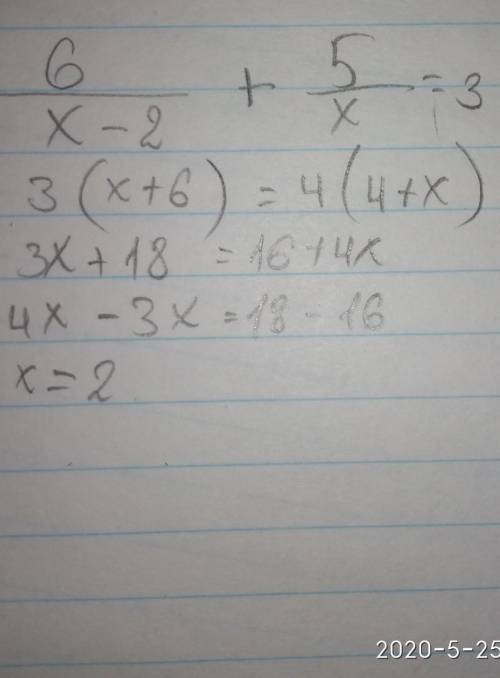 6/(x-2) + 5/x = 3
3(x+6) = 4(4+x)
3x+18 = 16+4x
4x - 3x = 18 - 16
x = 2
2020-5-25